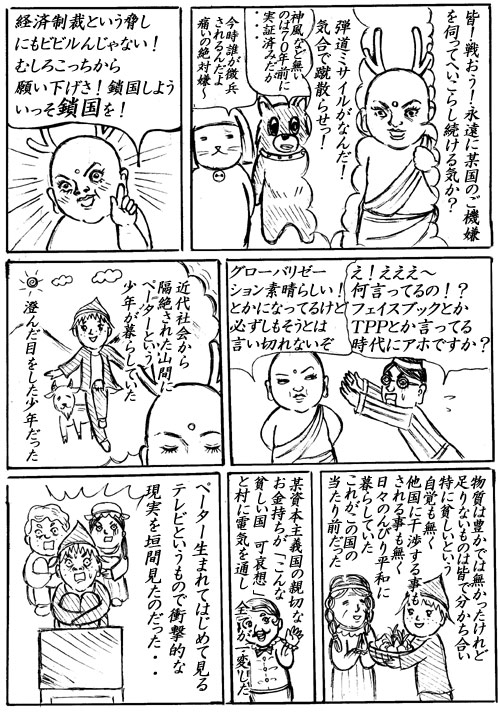 皆！戦おう！永遠に某国のご機嫌
を伺ってへいこらし続ける気か？
弾道ミサイルがなんだ！
気合で蹴散らせっ！
神風など無い
のは７０年前に
実証済みだが
・・・
今時誰が徴兵
されるんだよ
痛いの絶対嫌〜
経済制裁という脅し
にもビビルんじゃない！
むしろこっちから
願い下げさ！鎖国しよう
いっそ鎖国を！
え！えええ〜
何言ってるの！？
フェイスブックとか
TPPとか言ってる
時代にアホですか？
グローバリゼー
ション素晴らしい！
とかになってるけど
必ずしもそうとは
言い切れないぞ
近代社会から
隔絶された山間に
ペーターという
少年が暮らしていた
澄んだ目をした少年だった
物質は豊かでは無かったけれど
足りないものは皆で分かち合い
特に貧しいという
自覚も無く
他国に干渉する事も
される事も無く
日々のんびり平和に
暮らしていた
これがこの国の
当たり前だった
某資本主義国の親切な
お金持ちが「こんな
貧しい国　可哀想」
と村に電気を通し
全てが一変した
ペーター生まれてはじめて見る
テレビというもので衝撃的な
現実を垣間見たのだった・・